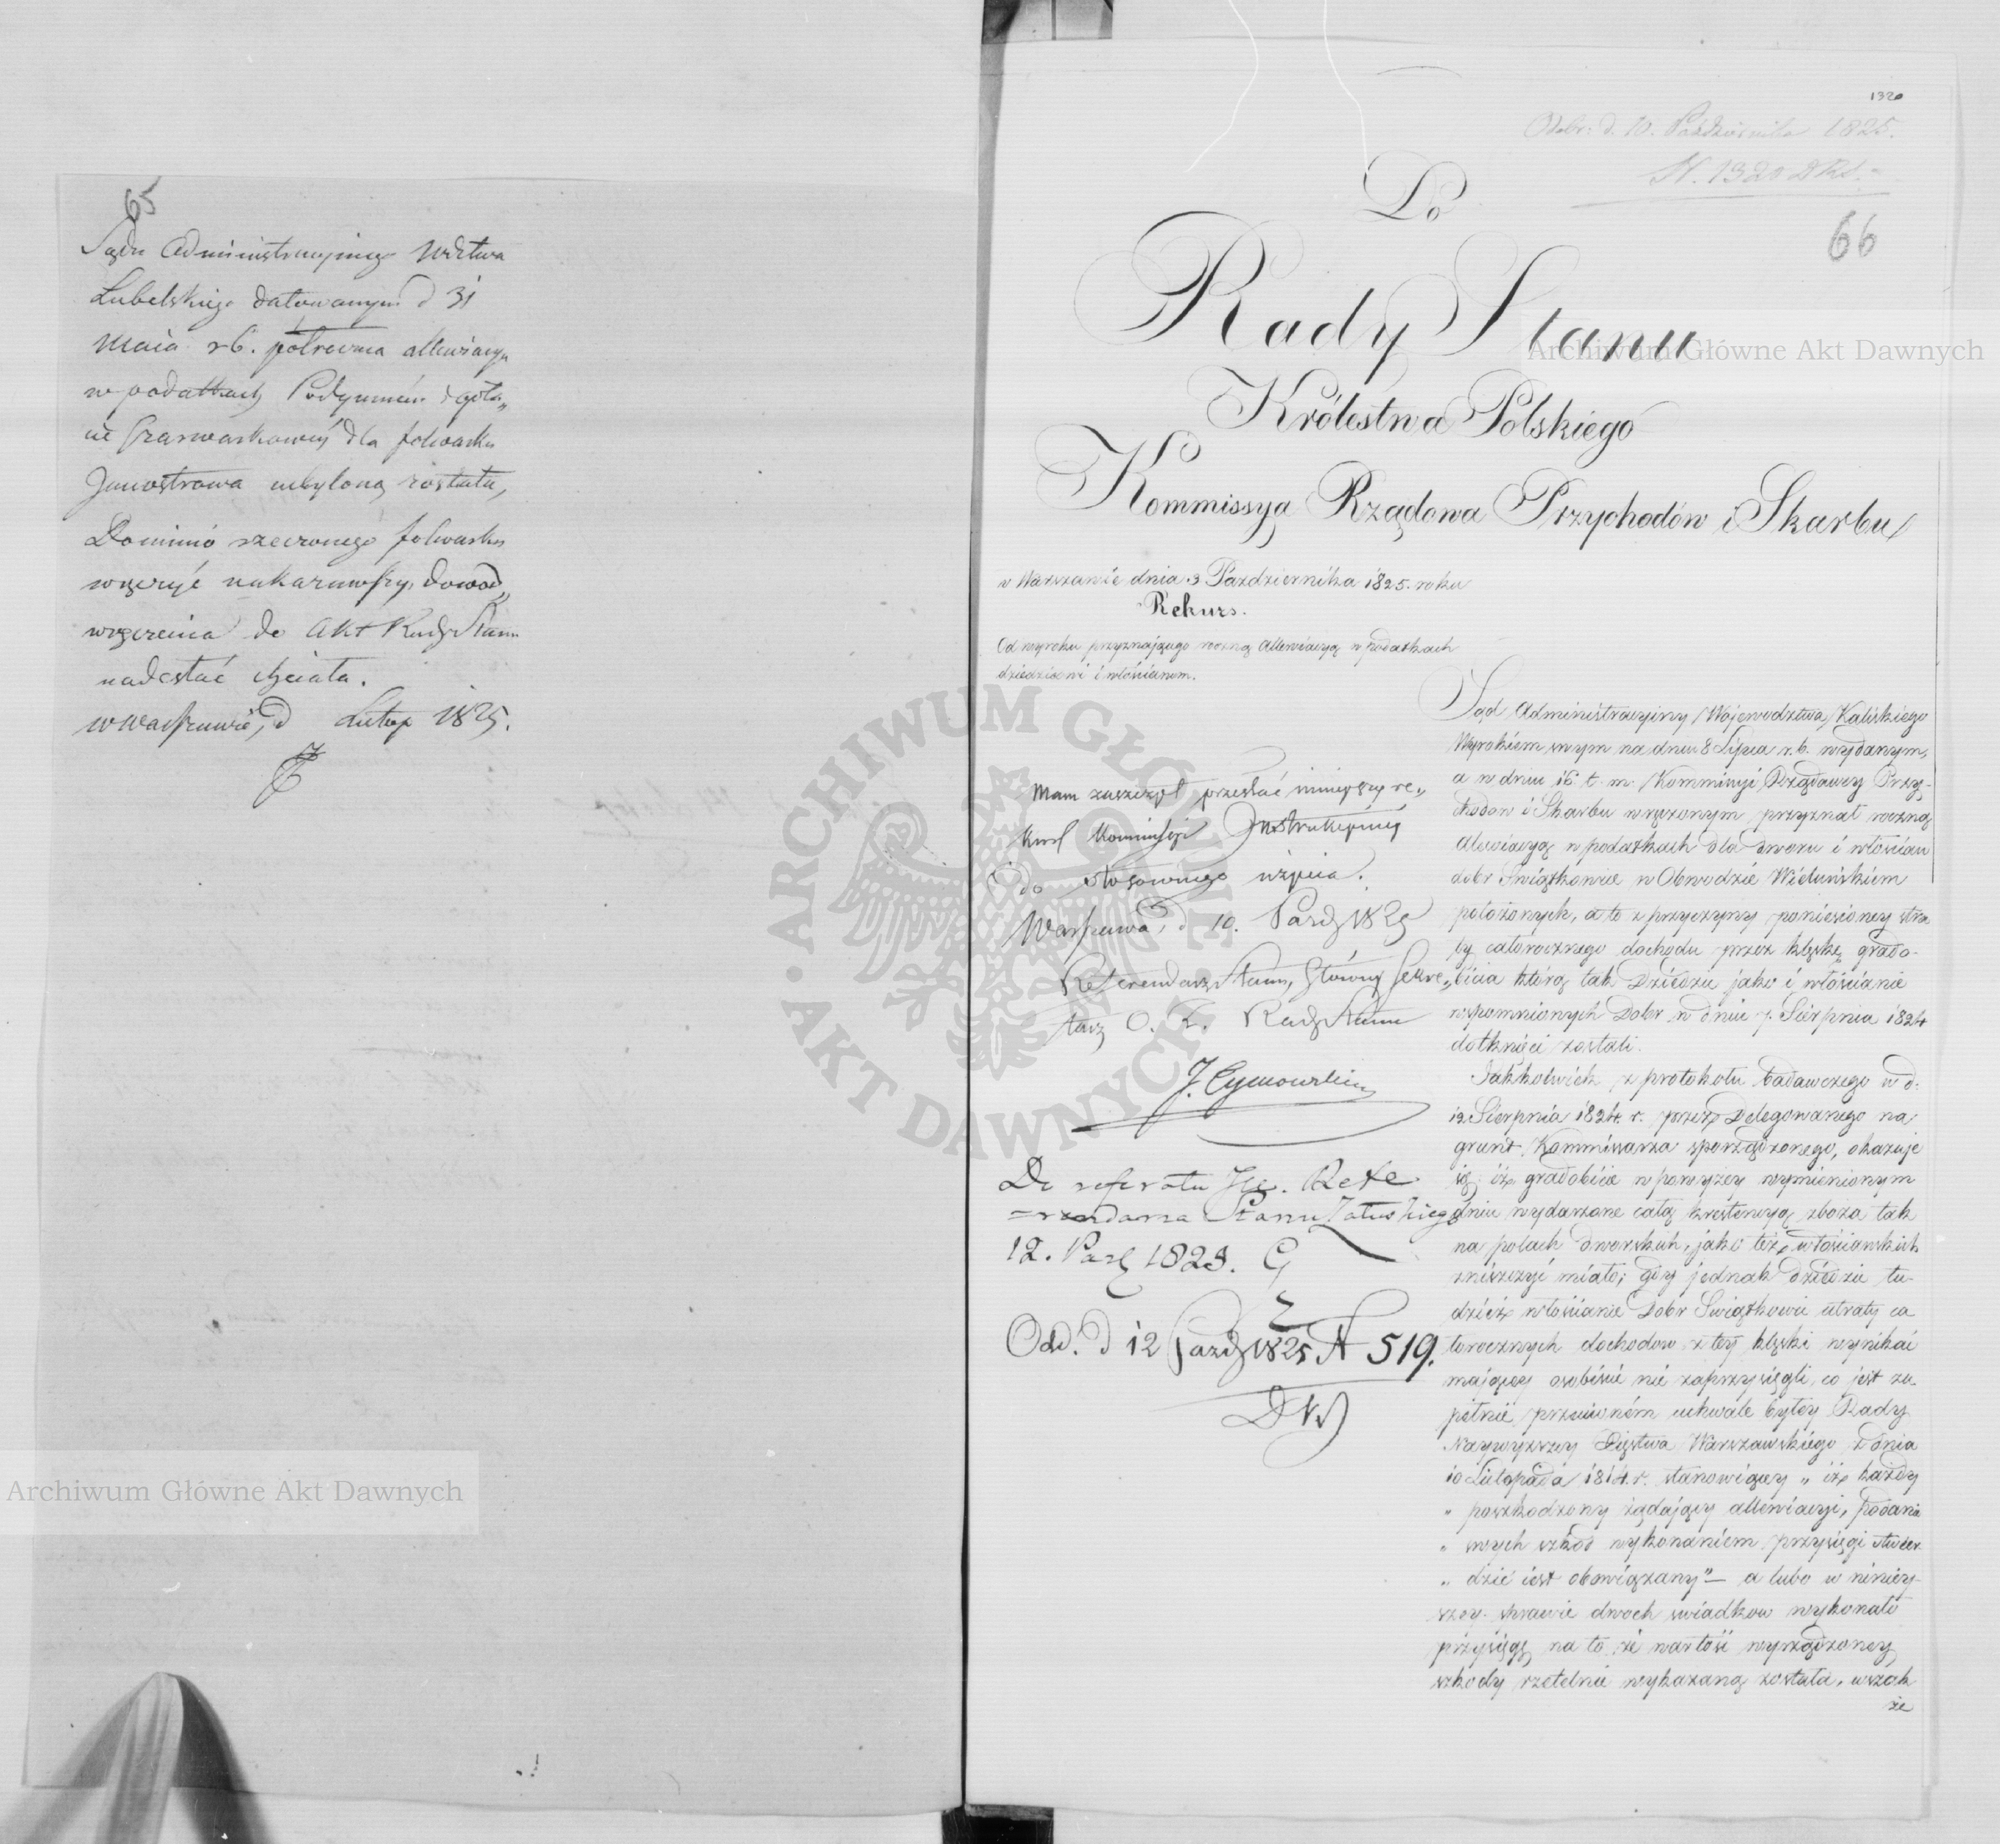 65
Sądu Administracyinego Wdztwa
Lubelskiego datowanym d 31
Maia rb. półroczna allewiacya
w podatkach Podymném i
Szarwarkowéy dla folwarku
Janostrowa uchyloną została,
Dominió rzeczonego folwarku
wręczyć nakazawszy, dowod
wręczenia do Akt Rady Stanu
nadesłać chciała.
w Warszawie, d Lutego 1825.
1320
Odebr: d. 10. Października 1825.
N. 1320 DRS.
66
Do
Rady Stanu
Królestwa Polskiego
Kommissya Rządowa Przychodów i Skarbu
w Warszawie dnia 3 Października 1825. roku
Rekurs.
Od wyroku przyznającego roczną allewiacyą w podatkach
dziedzicowi i włościanom.
Mam zaszczyt przesłać ninieyszy re„
kurs Kommissyi Instrukcyiney
do stosownego użycia.
Warszawa, d 10. Paźdz 1825
Referendarz Stanu, Główny Sekre„
tarz O. Z. Rady Stanu
J. Tymowski
Do referatu JW. Refe
=rendarza Stanu Załuskiego
12. Paźd 1825.
Odd. d 12 Paźdz 1825 N 519.
Sąd Administracyiny Wojewodztwa Kaliskiego
Wyrokiem swym na dniu 8 Lipca r.b. wydanym,
a w dniu 16 t. m. Kommissyi Rządowey Przy-
chodow i Skarbu wręczonym, przyznał roczną
alewiacyą w podatkach dla dworu i włościan
dobr Swiątkowice w Obwodzie Wieluńskiem
położonych, a to z przyczyny poniesioney stra
ty całorocznego dochodu przez klęskę grado-
bicia którą tak Dziedzic jako i włościanie
wspomnionych Dobr w dniu 7. Sierpnia 1824
dotknięci zostali.
Jakkolwiek z protokołu badawczego w d.
12 Sierpnia 1824. r. przez Delegowanego na
grunt Kommissarza sporządzonego, okazuje
się, iż gradobicie w powyżey wymienionym
dniu wydarzone całą krestencyą zboża tak
na polach dworskich, jako też włościanskich
zniszczyć miało; gdy jednak dziedzic tu-
dzież włościanie Dobr Swiątkowic utraty ca
łorocznych dochodow z tey klęski wynikai
mającey osobiście nie zaprzysięgli, co jest zu-
pełnie przeciwném uchwale byłey Rady
Naywyższey Xięstwa Warszawskiego z dnia
10 Listopada 1814. r. stanowiącey „ iż każdy
„ poszkodzony żądający allewiacyi, podania
„ swych szkod wykonaniem przysięgi stwier
„ dzić iest obowiązany” — a lubo w niniey-
szey sprawie dwoch swiadkow wykonało
przysięgę na to, że wartość wyrządzoney
szkody rzetelnie wykazaną została, wszak
że
Archiwum Główne Akt Dawnych
Archiwum Główne Akt Dawnych
ARCHIWUM GŁÓWNE AKT DAWNYCH